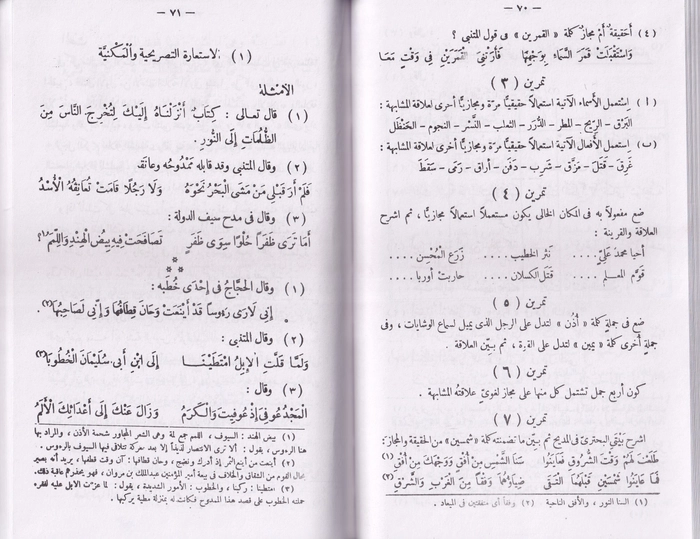 — ٧٠ —
(٤) أحقيقةٌ أم مجازٌ كلمة « القمرين » فى قول المتنبى ؟
وَاسْتَقْبَلَتْ قَمَرَ السَّمَاءِ بِوَجْهِهَا فَأَرَتْنِىَ الْقَمَرَيْنِ فِى وَقْتٍ مَعَا
تمرين (٣)
(١) اِستعمل الأسماء الآتية استعمالاً حقيقيًّا مرّة ومجازيًّا أخرى لعلاقة المشابهة :
البَرْق – الريح – المطر – الدُّرَر – الثعلب – النَّسْر – النجوم – الحَنْظَل
(ب) استعمل الأفعال الآتية استعمالاً حقيقيًّا مرة ومجازيًّا أخرى لعلاقة المشابهة :
غَرِقَ – قَتَلَ – مَزَّقَ – شَرِبَ – دَفَنَ – أراق – رَمَى – سَقَطَ
تمرين (٤)
ضع مفعولاً به فى المكان الخالى يكون مستعملاً استعمالاً مجازيًّا ، ثم اشرح
العلاقة والقرينة :
أحيا محمد علىّ .... نثر الخطيب ..... زَرَعَ المُحْسِن ....
قوّم المعلم .... قتل الكسلان .... حاربت أوربا ....
تمرين (٥)
ضع فى جملةٍ كلمة « أذُن » لتدل على الرجل الذى يميل لسماع الوشايات ، وفى
جملة أخرى كلمة « يمين » لتدل على القوة ، ثم بيّن العلاقة .
تمرين (٦)
كون أربع جمل تشتمل كل منها على مجاز لغوىّ علاقتُه المشابهة .
تمرين (٧)
اشرح بَيْتَىِ البحترىّ فى المديح ثم بيّن ما تضمنته كلمة « شمسين » من الحقيقة والمجاز:
طَلَعْتَ لَهُمْ وَقْتَ الشُّرُوقِ فَعَايَنُوا سَنَا الشَّمْسِ مِنْ أُفْقٍ وَوَجْهَكَ مِنْ أُفْقِ (١)
فَمَا عَايَنُوا شَمْسَيْنِ قَبْلَهُمَا الْتَقَى ضِيَاؤُهُمَا وَفْقًا مِنَ الْغَرْبِ وَالشَّرْقِ (٢)
(١) السنا النور ، والأفق الناحية (٢) وفقاً أى متفقتين فى الميعاد .
— ٧١ —
(١) الاستعارة التصريحية والْمَكْنيَّة
الأمثلة
(١) قال تعالى : كِتَابٌ أَنْزَلْنَاهُ إِلَيْكَ لِتُخْرِجَ النَّاسَ مِنَ
الظُّلُمَاتِ إِلَى النُّورِ
(٢) وقال المتنبى وقد قابله مَمْدُوحُه وعانَقه
فَلَمْ أَرَ قَبْلِى مَنْ مَشَى الْبَحْرُ نَحْوَهُ وَلَا رَجُلًا قَامَتْ تُعَانِقُهُ الْأُسْدُ
(٣) وقال فى مدح سيف الدولة :
أَمَا تَرَى ظَفَرًا حُلْوًا سِوَى ظَفَرٍ تَصَافَحَتْ فِيهِ بِيضُ الْهِنْدِ وَاللِّمَمُ (١) ؟
* * *
(١) وقال الحَجَّاجُ فى إحْدَى خُطَبِه :
إنى لَأرَى رءوسًا قَدْ أَيْنَعَتْ وَحَانَ قِطَافُهَا وَإِنِّى لَصَاحِبُهَا (٢) .
(٢) وقال المتنبى :
وَلَمَّا قَلَّتِ الْإِبِلُ امْتَطَيْنَا إِلَى ابْنِ أَبِى سُلَيْمَانَ الْخُطُوبَا (٣)
(٣) وقال :
الْمَجْدُ عُوفِىَ إذْ عُوفِيتَ وَالْكَرَمُ وَزَالَ عَنْكَ إِلَى أَعْدَائِكَ الْأَلَمُ
(١) بيض الهند : السيوف ، اللمم جمع لمة وهى الشعر المجاور شحمة الأذن ، والمراد بها
هنا الرءوس ، يقول : ألا ترى الانتصار لذيذاً إلا بعد معركة تتلاقى فيها السيوف بالرءوس .
(٢) أينعت من أينع الثمر إذ أدرك ونضج ، وحان قطافها : آن وقت قطافها ، يريد أنه بصير
بحال القوم من الشقاق والخلاف فى بيعة أمير المؤمنين عبدالملك بن مروان ، فهو يحذرهم عاقبة ذلك.
(٣) امتطينا : ركبنا ، والخطوب : الأمور الشديدة ، يقول : لما عزت الابل عليه لفقره
حملته الخطوب على قصد هذا الممدوح فكانت له بمنزلة مطية يركبها .